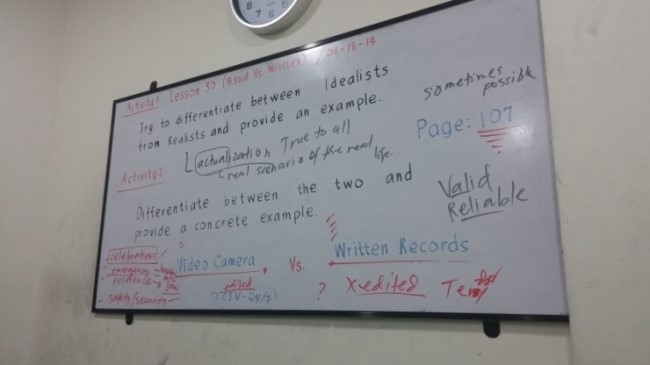 Activity1 Lesson 30 (Read Vs Written) / 03-18-14
Try to differentiate between Idealists
from Realists and provide an example.
sometimes
possible
Page: 107
actualization True to all
real scenario of the real
life.
Activity2:
Differentiate between the two and
provide a concrete example.
Valid
Reliable
celebration
emergency
evidence
safety/security
Video Camera
Vs.
Written Records
edited
(CCTV-24/7)
? X-edited